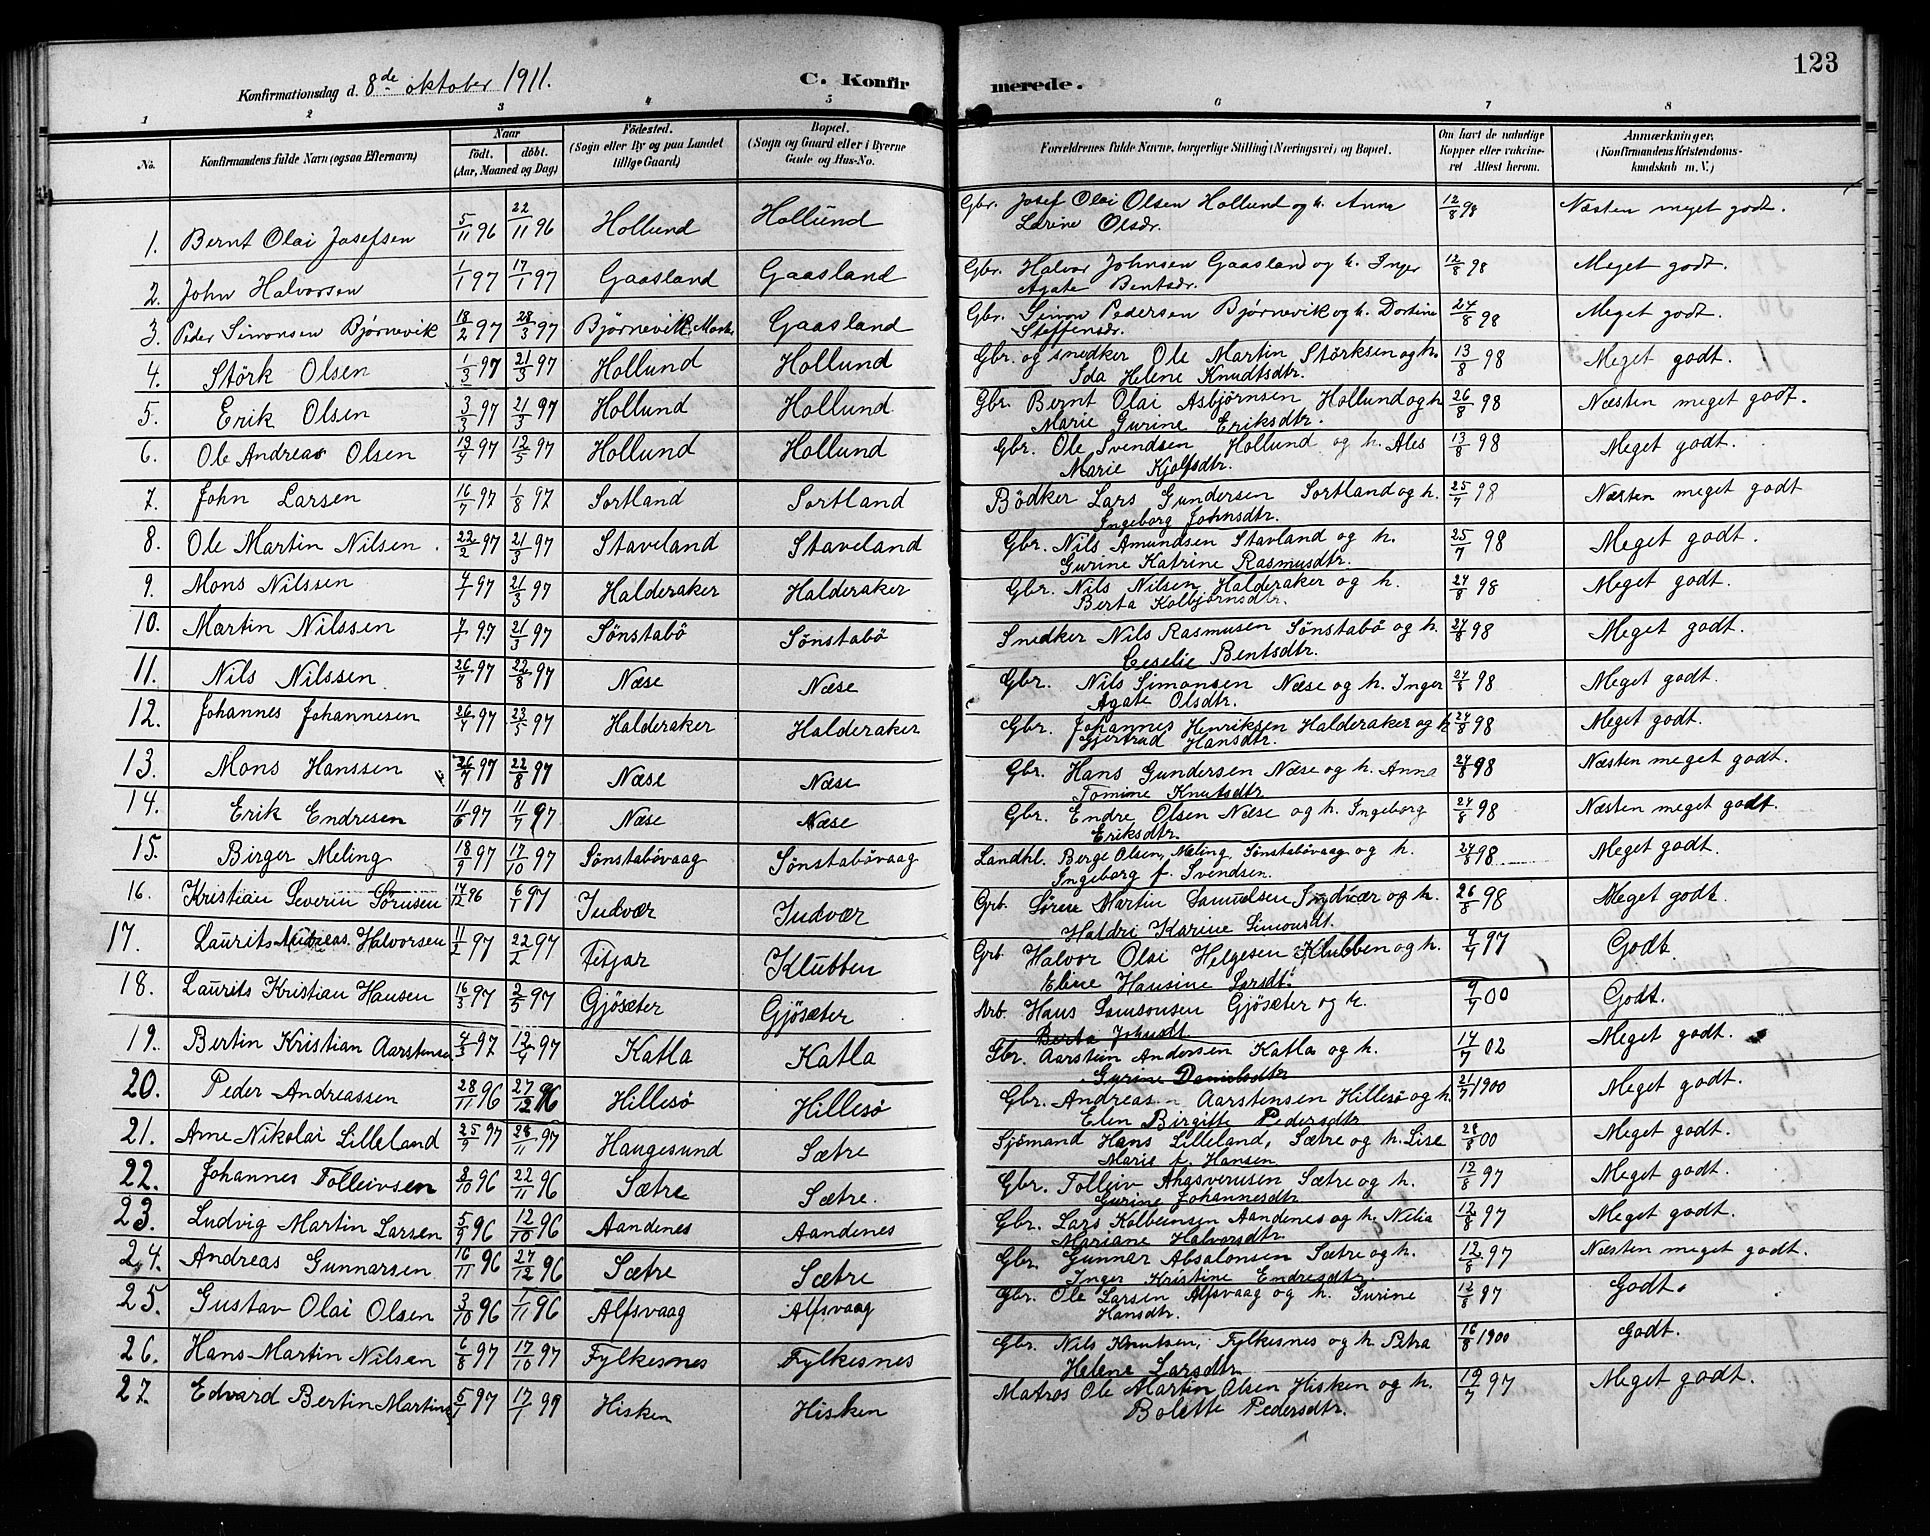 123
Konfirmationsdag d. 8de oktober 1911.
C. Konfirmerede.
1 2 3 4 5 6 7 8
No. Konfirmandens fulde Navn (ogsaa Efternavn) Naar født. døbt. (Aar, Maaned og Dag) Fødested. (Sogn eller By og paa Landet tillige Gaard) Bopæl. (Sogn og Gaard eller i Byerne Gade og Hus-No. Forældrenes fulde Navne, borgerlige Stilling (Næringsvei) og Bopæl. Om havt de naturlige Kopper eller vaccineret Attest herom. Anmærkninger. (Konfirmandens Kristendomskundskab m. V.)
1. Bernt Olai Josefsen 5/11 96 22/11 96 Hollund Hollund Gbr. Josef Olai Olsen Hollund og h. Anna 12/8 98 Næsten meget godt.
Larine Olsdr.
2. John Halvorsen 1/1 97 17/1 97 Gaasland Gaasland Gbr. Halvor Johnsen Gaasland og h. Inger 12/8 98 Meget godt.
Agate Bentsdr.
3. Peder Simonsen Bjørnevik 18/2 97 28/3 97 Bjørnevik Gaasland Gbr. Simon Pedersen Bjørnevik og h. Dortine 24/8 98 Meget godt.
Steffensdr.
4. Störk Olsen 1/3 97 21/3 97 Hollund Hollund Gbr. og snedker Ole Martin Störksen og h. 13/8 98 Meget godt.
Ida Helene Knudtsdtr.
5. Erik Olsen 3/3 97 21/3 97 Hollund Hollund Gbr. Bernt Olai Asbjørnsen Hollund og h 26/8 98 Næsten meget godt.
Marie Gurine Eriksdtr.
6. Ole Andreas Olsen 97 12/5 97 Hollund Hollund Gbr. Ole Svendsen Hollund og h. Ales 13/8 98 Meget godt.
Marie Kjolfsdtr.
7. John Larsen 16/7 97 1/8 97 Sortland Sortland Bödker Lars Gundersen Sortland og h. 25/7 98 Næsten meget godt
Ingeborg Johnsdtr.
8. Ole Martin Nilsen 22/2 97 21/3 97 Staveland Staveland Gbr. Nils Amundsen Stavland og h. 25/7 98 Meget godt.
Gurine Katrine Rasmusdtr.
9. Mons Nilssen 97 21/3 97 Halderaker Halderaker Gbr. Nils Nilsen Halderaker og h. 24/8 98 Meget godt.
Berta Kolbjørnsdtr.
10. Martin Nilssen 97 21/3 97 Sönstabö Sönstabö Snedker Nils Rasmusen Sönstabö og h. 24/8 98 Meget godt.
Ceselie Bentsdtr.
11. Nils Nilssen 26/7 97 22/8 97 Næse Næse Gbr. Nils Simonsen Næse og h. Inger 24/8 98 Meget godt.
Agate Olsdtr.
12. Johannes Johannesen 26/4 97 23/5 97 Halderaker Halderaker Gbr. Johannes Henriksen Halderaker og h 24/8 98 Meget godt.
Gjertrud Hansdtr.
13. Mons Hanssen 26/7 97 22/8 97 Næse Næse Gbr. Hans Gundersen Næse og h. Anna 24/8 98 Næsten meget godt.
Tomine Knutsdtr
14. Erik Endresen 11/6 97 11/7 97 Næse Næse Gbr. Endre Olsen Næse og h. Ingeborg 24/8 98 Næsten meget godt.
Eriksdtr.
15. Birger Meling 18/9 97 17/10 97 Sönstabövaag Sönstabövaag Landhl. Berge Olsen Meling Sönstabövaag og h. 24/8 98 Meget godt.
Ingeborg f. Svendsen.
16. Kristian Severin Sørnsen 17/12 96 6/1 97 Indvær Indvær Grb. Sören Martin Samuelsen Indvær og h. 26/8 98 Meget godt.
Haldri Karine Simonsdt.
17. Laurits Andreas Halvorsen 11/2 97 22/2 97 Fitjar Klubben Grb. Halvor Olai Helgesen Klubben og h. 97 Godt.
Elene Hansine Larsdt.
18. Laurits Kristian Hansen 16/3 97 2/5 97 Gjösæter Gjösæter Arb. Hans Samsonsen Gjösæter og h. 00 Godt.
Berta Johnsdt
19. Bertin Kristian Aarstensen 97 12/4 97 Katla Katla Gbr. Aarstein Andersen Katla og h. 17/7 02 Meget godt.
Gurine Danielsdtr
20. Peder Andreassen 28/11 96 27/12 96 Hillesö Hillesö Gbr. Andreas Aarstensen Hillesö og h. 21/7 1900 Meget godt.
Elen Birgitte Pedersdtr
21. Arne Nikolai Lilleland 25/9 97 28/11 97 Haugesund Sætre Sjömand Hans Lilleland, Sætre og h. Lise 28/8 00 Meget godt.
Marie f. Hansen
22. Johannes Tolleivsen 8/10 96 22/11 96 Sætre Sætre. Gbr. Tolleiv Ahasverusen Sætre og h. 12/8 97 Meget godt.
Gurine Johannesdtr
23. Ludvig Martin Larsen 5/9 96 12/10 96 Aandenes Aandenes Gbr. Lars Kolbeinsen Aandenes og h. Nelia 12/8 97 Meget godt.
Mariane Halvorsdtr.
24. Andreas Gunnarsen 16/11 96 27/12 96 Sætre Sætre Gbr. Gunnar Absalonsen Sætre og h. 12/8 97 Næsten meget godt.
Inger Kristine Endresdtr.
25. Gustav Olai Olsen 3/10 96 1/11 96 Alfsvaag Alfsvaag Gbr. Ole Larsen Alfsvaag og h. Gurine 12/8 97 Godt.
Hansdtr.
26. Hans Martin Nilsen 6/8 97 17/10 97 Fylkesnes Fylkesnes Gbr. Nils Knutsen, Fylkesnes og h. Petra 16/8 1900 Godt.
Helene Larsdtr.
27. Edvard Bertin 5/1 97 17/1 99 Hisken Hisken Matros Ole Martin Olsen Hisken og h. 19/7 97 Meget godt.
Bolette Pedersdtr.